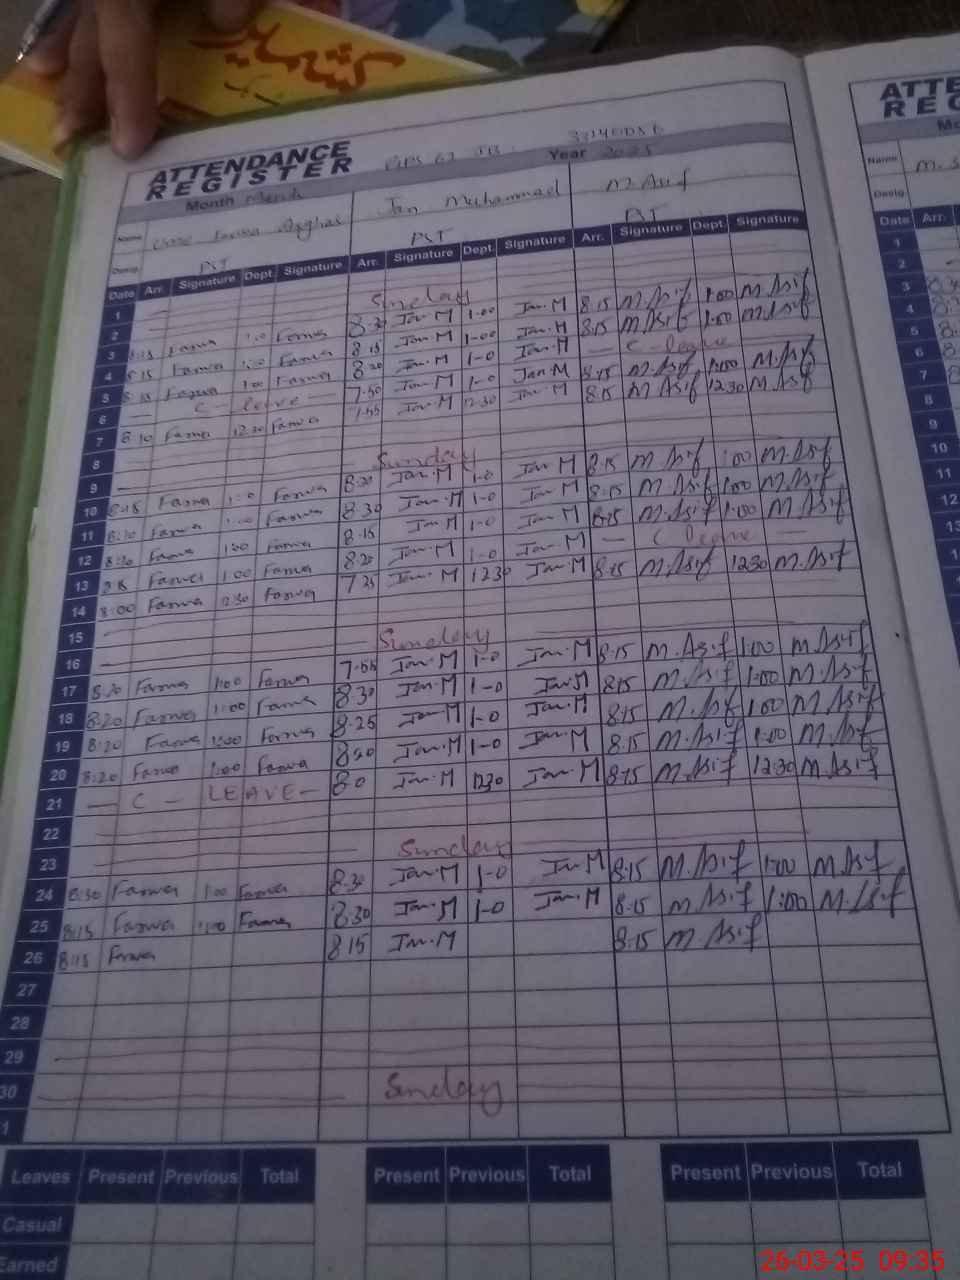 ATTENDANCE
REGISTER
Month March Year 2025
Name Farwa Asghar Jan Muhammad M. Asif
Desig. PST PST PST
Date Arr. Signature Dept. Signature Arr. Signature Dept. Signature Arr. Signature Dept. Signature
1
2 Sunday
3 8:15 Farwa 1:0 Farwa 8:30 Jan.M 1-00 Jan.M 8:15 M.Asif 1:00 M.Asif
4 8:15 Farwa 1:00 Farwa 8:15 Jan.M 1-00 Jan.M 8:15 M.Asif 1:00 M.Asif
5 8:15 Farwa 1:00 Farwa 8:20 Jan.M 1-0 Jan.M — C-leave —
6 — C-leave — 7-50 Jan.M 1-0 Jan.M 8:15 M.Asif 1:00 M.Asif
7 8:10 Farwa 12:30 Farwa 7-55 Jan.M 12:30 Jan.M 8:15 M.Asif 12:30 M.Asif
8
9 Sunday
10 8:15 Farwa 1:0 Farwa 8:20 Jan.M 1-0 Jan.M 8:15 M.Asif 1:00 M.Asif
11 8:20 Farwa 1:00 Farwa 8:30 Jan.M 1-0 Jan.M 8:15 M.Asif 1:00 M.Asif
12 8:20 Farwa 1:00 Farwa 8-15 Jan.M 1-0 Jan.M 8:15 M.Asif 1:00 M.Asif
13 Farwa 1:00 Farwa 8:20 Jan.M 1-0 Jan.M — C leave —
14 8:00 Farwa 12:30 Farwa 7:25 Jan.M 1230 Jan.M 8:15 M.Asif 1230 M.Asif
15
16 Sunday
17 8:20 Farwa 1:00 Farwa 7-55 Jan.M 1-0 Jan.M 8:15 M.Asif 1:00 M.Asif
18 8:20 Farwa 1:00 Farwa 8:30 Jan.M 1-0 Jan.M 8:15 M.Asif 1:00 M.Asif
19 8:20 Farwa 1:00 Farwa 8-25 Jan.M 1-0 Jan.M 8:15 M.Asif 1:00 M.Asif
20 8:20 Farwa 1:00 Farwa 8:20 Jan.M 1-0 Jan.M 8:15 M.Asif 1:00 M.Asif
21 — C - LEAVE — 8:0 Jan.M 1230 Jan.M 8:15 M.Asif 12:30 M.Asif
22
23 Sunday
24 8:30 Farwa 1:00 Farwa 8:30 Jan.M 1-0 Jan.M 8:15 M.Asif 1:00 M.Asif
25 8:15 Farwa 1:00 Farwa 8:30 Jan.M 1-0 Jan.M 8:15 M.Asif 1:00 M.Asif
26 8:15 Farwa 8:15 Jan.M 8:15 M.Asif
27
28
29
30 Sunday
1
Leaves Present Previous Total Present Previous Total Present Previous Total
Casual
Earned
26-03-25 09:35
Name M.
Desig.
Date Arr.
1
2
3
4
5
6
7
8
9
10
11
12